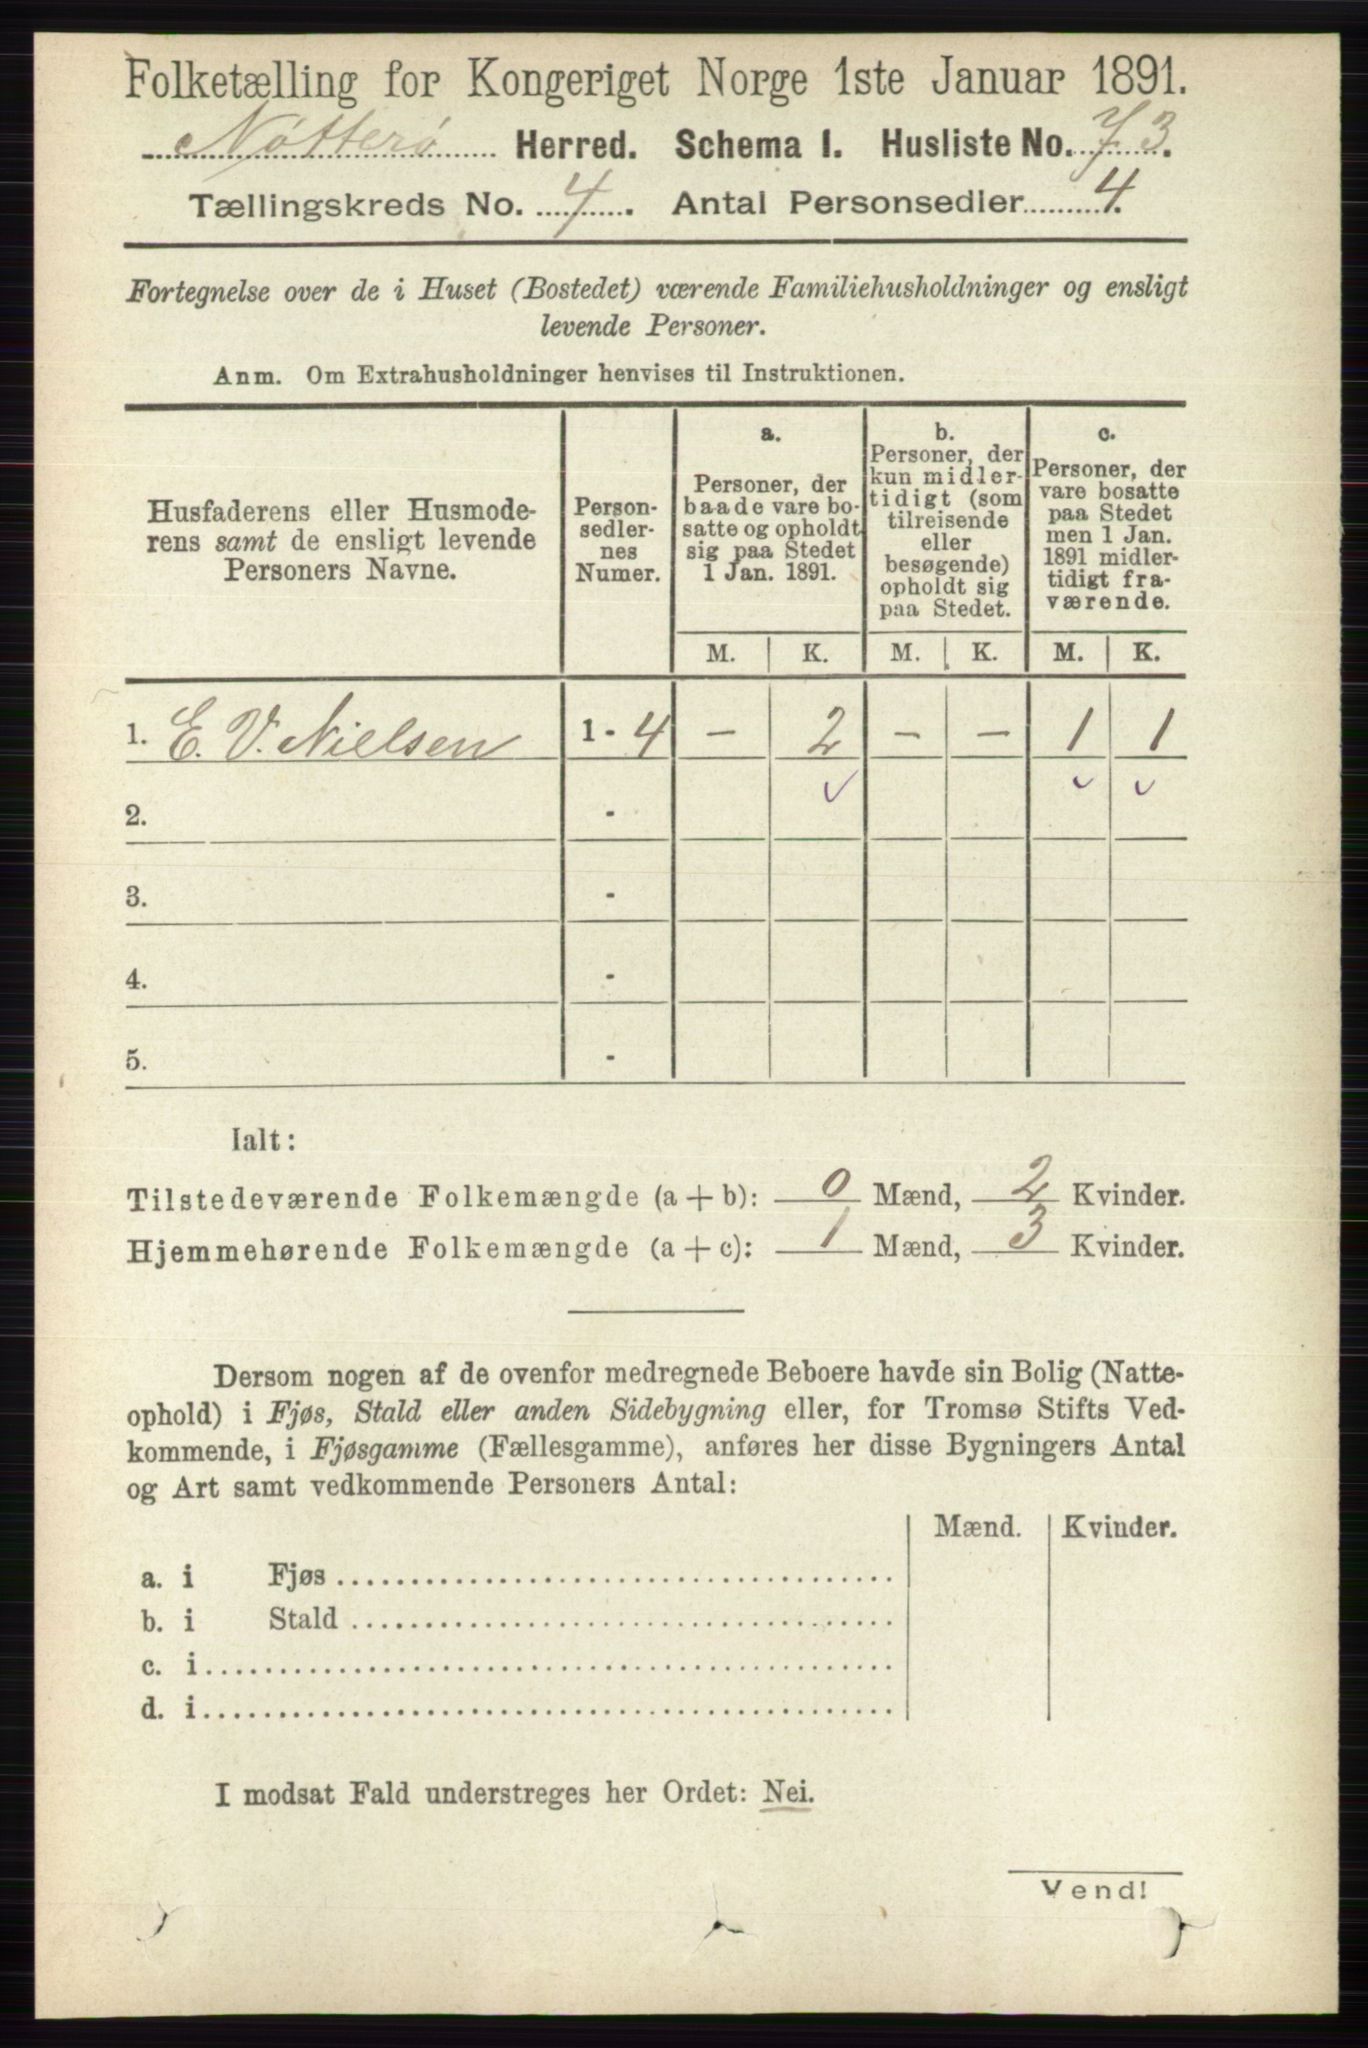 Folketælling for Kongeriget Norge 1ste Januar 1891.
Nøtterø Herred. Schema I. Husliste No. 73.
Tællingskreds No. 4. Antal Personsedler 4.
Fortegnelse over de i Huset (Bostedet) værende Familiehusholdninger og ensligt
levende Personer.
Anm. Om Extrahusholdninger henvises til Instruktionen.
Husfaderens eller Husmode-
rens samt de ensligt levende
Personers Navne.
Person-
sedler-
nes
Numer.
a.
Personer, der
baade vare bo-
satte og opholdt
sig paa Stedet
1 Jan. 1891.
b.
Personer, der
kun midler-
tidigt (som
tilreisende
eller
besøgende)
opholdt sig
paa Stedet.
c.
Personer, der
vare bosatte
paa Stedet
men 1 Jan.
1891 midler-
tidigt fra-
værende.
M. K. M. K. M. K.
1. E. V. Nielsen 1 - 4 - 2 - - 1 1
2. -
3. -
4. -
5. -
Ialt:
Tilstedeværende Folkemængde (a + b): 0 Mænd, 2 Kvinder.
Hjemmehørende Folkemængde (a + c): 1 Mænd, 3 Kvinder.
Dersom nogen af de ovenfor medregnede Beboere havde sin Bolig (Natte-
ophold) i Fjøs, Stald eller anden Sidebygning eller, for Tromsø Stifts Ved-
kommende, i Fjøsgamme (Fællesgamme), anføres her disse Bygningers Antal
og Art samt vedkommende Personers Antal:
Mænd. Kvinder.
a. i Fjøs
b. i Stald
c. i
d. i
I modsat Fald understreges her Ordet: Nei.
Vend!